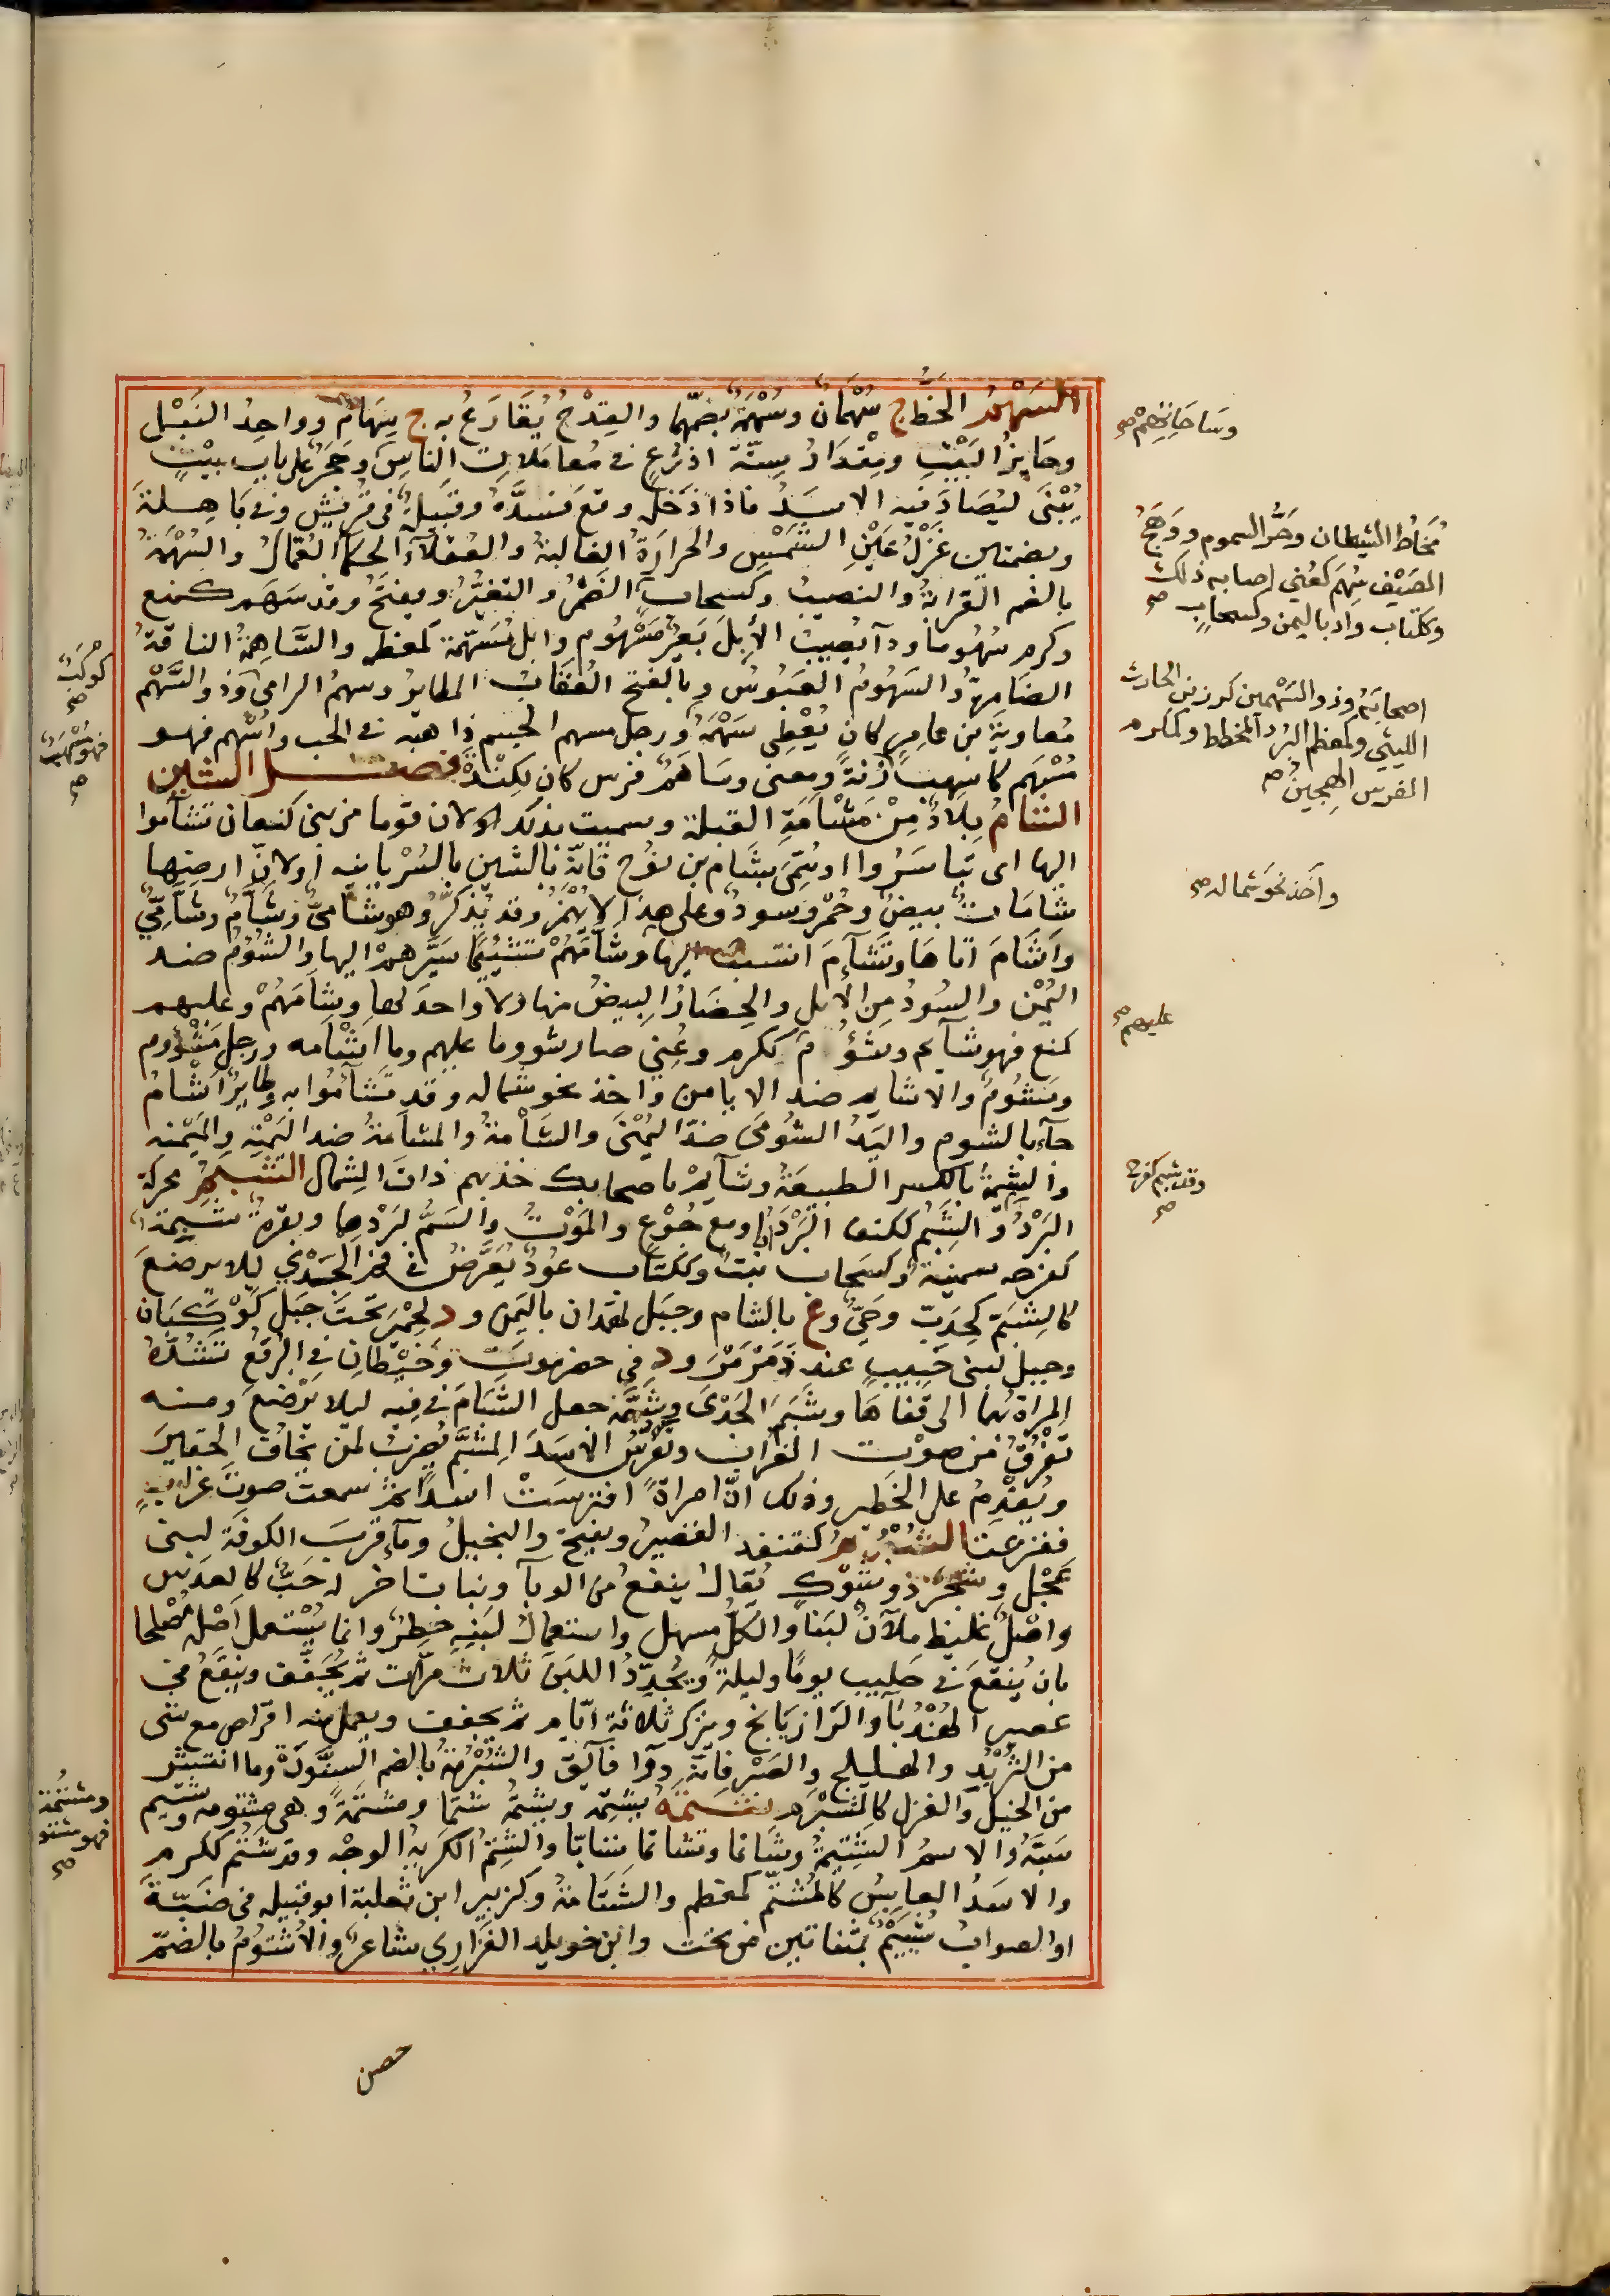 السَهْمُ الحَظُّ ج سُهْمَانٌ وسُهْمَةٌ بضمّهما والقِدْحُ يُقَارَعُ به ج سِهَامٌ وواحِدُ النَبْلِ
وجَايِزُ البَيْتِ ومِقْدَارُ سِتّة اذرُعٍ في مُعامَلاتِ الناسِ وحَجَرٌ على باب بيْتٍ
يُبْنَى ليُصَادَ فيه الاسَدُ فاذا دَخَل وقع فسَدَّهُ وقبيلةٌ في قريش وفي بَاهِلةَ
وبضمتين غَزْلُ عَيْنِ الشَمْسِ والحرارَةُ الغالبةُ والعُقلاءُ الحكمآءُ العُمالُ والسُهْمَةُ
بالضم القرابَةُ والنصيبُ وكسحاب الضُمْرُ والتغيُّرُ ويفتَحُ وقد سَهَم كمنع
وكرم سُهُوما ودآ يُصيبُ الأبِلَ بَعيرٌ مَسْهُوم وابل مُسَهَّمة كمعظم والسَّاهِمةُ الناقةُ
الضَامِرةُ والسَهُومُ العَبُوسُ وبالفتح العُقَابُ الطايرُ وسهمُ الرامي وذو السَّهْم
مُعاويَةُ بن عامِرٍ كان يُعْطِي سَهْمَهُ ورجل مسهم الجسم ذاهبه في الحب واسْهَم فهو
مُسْهَم كاسهب زِنةً ومعنى وساهَمُ فرس كان لكِنْدةَ فصـــل الشين
الشَّامُ بِلادٌ مِنْ مَشْأمَةِ القبلة وسميت بذلك او لان قوما من بني كنعان تشآموا
اليها اى تَياسَرُوا او سُمِّيَ بشَام بن نُوح فانّهُ بالشين بالسُرْيانيه او لانّ ارضها
شَامَاتٌ بيضٌ وحُمْرٌ وسودٌ وعلى هذا لا يُهْمَزُ وقد يُذكّرُ وهو شَامِيٌّ وشَآمٍ وشَآمِيٌّ
واَشْأمَ اتاهَا وتَشَأّمَ انتسب اليها وشأّمَهُمْ تشئيمًا سَيَّرهم اليها والشُؤْمُ ضد
اليُمْن والسُودُ من الابل والحِضَارُ البيضُ منها ولا واحد لهما وشَأمَهُمْ وعليهم
كمنع فهو شآيم وشَؤُمَ ككرم وعُنِيَ صار شووما عليهم وما اشْأمه ورجل مَشْؤوم
ومشُومٌ والاشايم ضد الايامن واخذ نحو شماله وقد تَشاَمُوا به وطايرٌ اَشْأمُ
جآء بالشوم واليَدُ الشُؤمَى ضدّ اليُمْنَى والشَأْمةُ والمشأمةُ ضد اليَمْنَه والمَيْمَنه
والشِيمَةُ بالكسر الطبيعَةُ وشَآيِمْ باصحابك خذ بهم ذاتَ الشِمال الشَبَمُ محركة
البَرْدُ والشَبِمُ ككتف البَرْدَانُ او مع جُوْعٍ والمَوْتُ والسَمُّ لبَرْدها وبقرةٌ شَبِمةٌ
كفرحه سمينة وكسَحاب نبتٌ وككتاب عُودٌ يُعَرَّضُ في فم الجَدْي ليلا يرضعَ
كالشَبَمَ كخِدَبٍّ وحَيٌّ وع بالشام وجبل لهمدان باليَمن ود لحِمْيَر تحت جبل كَوْكبَان
وجبل لبني حَبيبٍ عند ذَمَرْمَرَ ود في حضرموت وخَيْطانِ في البُرقُع تشُدّهُ
المراة بهما الى قفاهَا وشَبَمَ الجَدْيَ وشَبَّمه جعل الشِبَامَ في فيه ليلا يَرْضَعَ ومنه
تَفْرَقُ من صوْت الغراب وتَفْرِسُ الاسَدَ المُشَبَّم يُضرَبُ لمَن يخافُ الحَقيرَ
ويُقْدِمُ على الخَطِير وذلك انّ امراةً افترسَتْ اسدًا ثم سمعت صوتَ غرابٍ
ففزعت الشُبْرُم كقنفد القصيرُ ويفتح والبخيلُ ومآءٌ قربَ الكوفَة لبني
عِجْل وشجر ذو شوْك يُقالُ ينفعُ من الوبآ ونباتٌ اخر له حَبٌّ كالعدَس
واصْلٌ غليظٌ ملآنٌ لبَنا والكلُّ مسهل واستعمالُ لبَنِه خطِرٌ وانما يُسْتَعمل اَصْله مُصْلحا
بان يُنقَعَ في حليب يوماً وليلةً ويُجَدّدُ اللبنَ ثلاث مرّات ثم يُجَفّف ويُنقَعُ في
عصير الهُنْدُبَا والرَازيَانج ويترك ثلاثة ايّام ثم يجفف ويعمل منه اقراص مع شي
من التُرْبُدِ والهليلج والصَبْر فانّهُ دوآء فآئق والشُبْرُمةُ بالضم السِنَّوْرةُ وما انتشر
من الحَبل والغزل كالشُبْرُم شَتَمَهُ يشتِمُه ويشتُمُه شَتْما ومَشْتَمَةً وهي مشتومه وشتيم
سَبَّهُ والاسمُ الشَتِيمةُ وشَاتَما وتشاتما تسابّا والشَتِيمُ الكَرِيهُ الوجْه وقد شتُم ككرم
والاسَدُ العابِسُ كالمُشَتَّم كمعظم والشَتَامَةُ وكزبير ابن ثعلبة ابو قبيله في ضَبّةَ
او الصواب شُيَيْمٌ بمثناتين من تحت وابن خويلد الفَزَارِي شاعرٌ والاُشْتُومُ بالضمّ
وسَاحَابِنِهِمْ صح
مُخَاطُ الشيطان وحَرُّ السموم ووَهَجُ
الصَيْف سُهِمَ كعُنِي اصابه ذلك
وككتاب واد باليمن وكسحابٍ صح
اصحابِهُم وذو السَهْمين كرز بن الحارث
الليثي وكمعظم البُرْد المخطط وكمكرم
الفرس الهجينُ صح
وآخذ نحوَ شماله صح
عليهم صح
وقد شبم كفرح
صح
كُوكَبٌ
صح
فهو مُسْهَبٌ
صح
ومشتُمَةً
فهو مشتو
صح
حصن